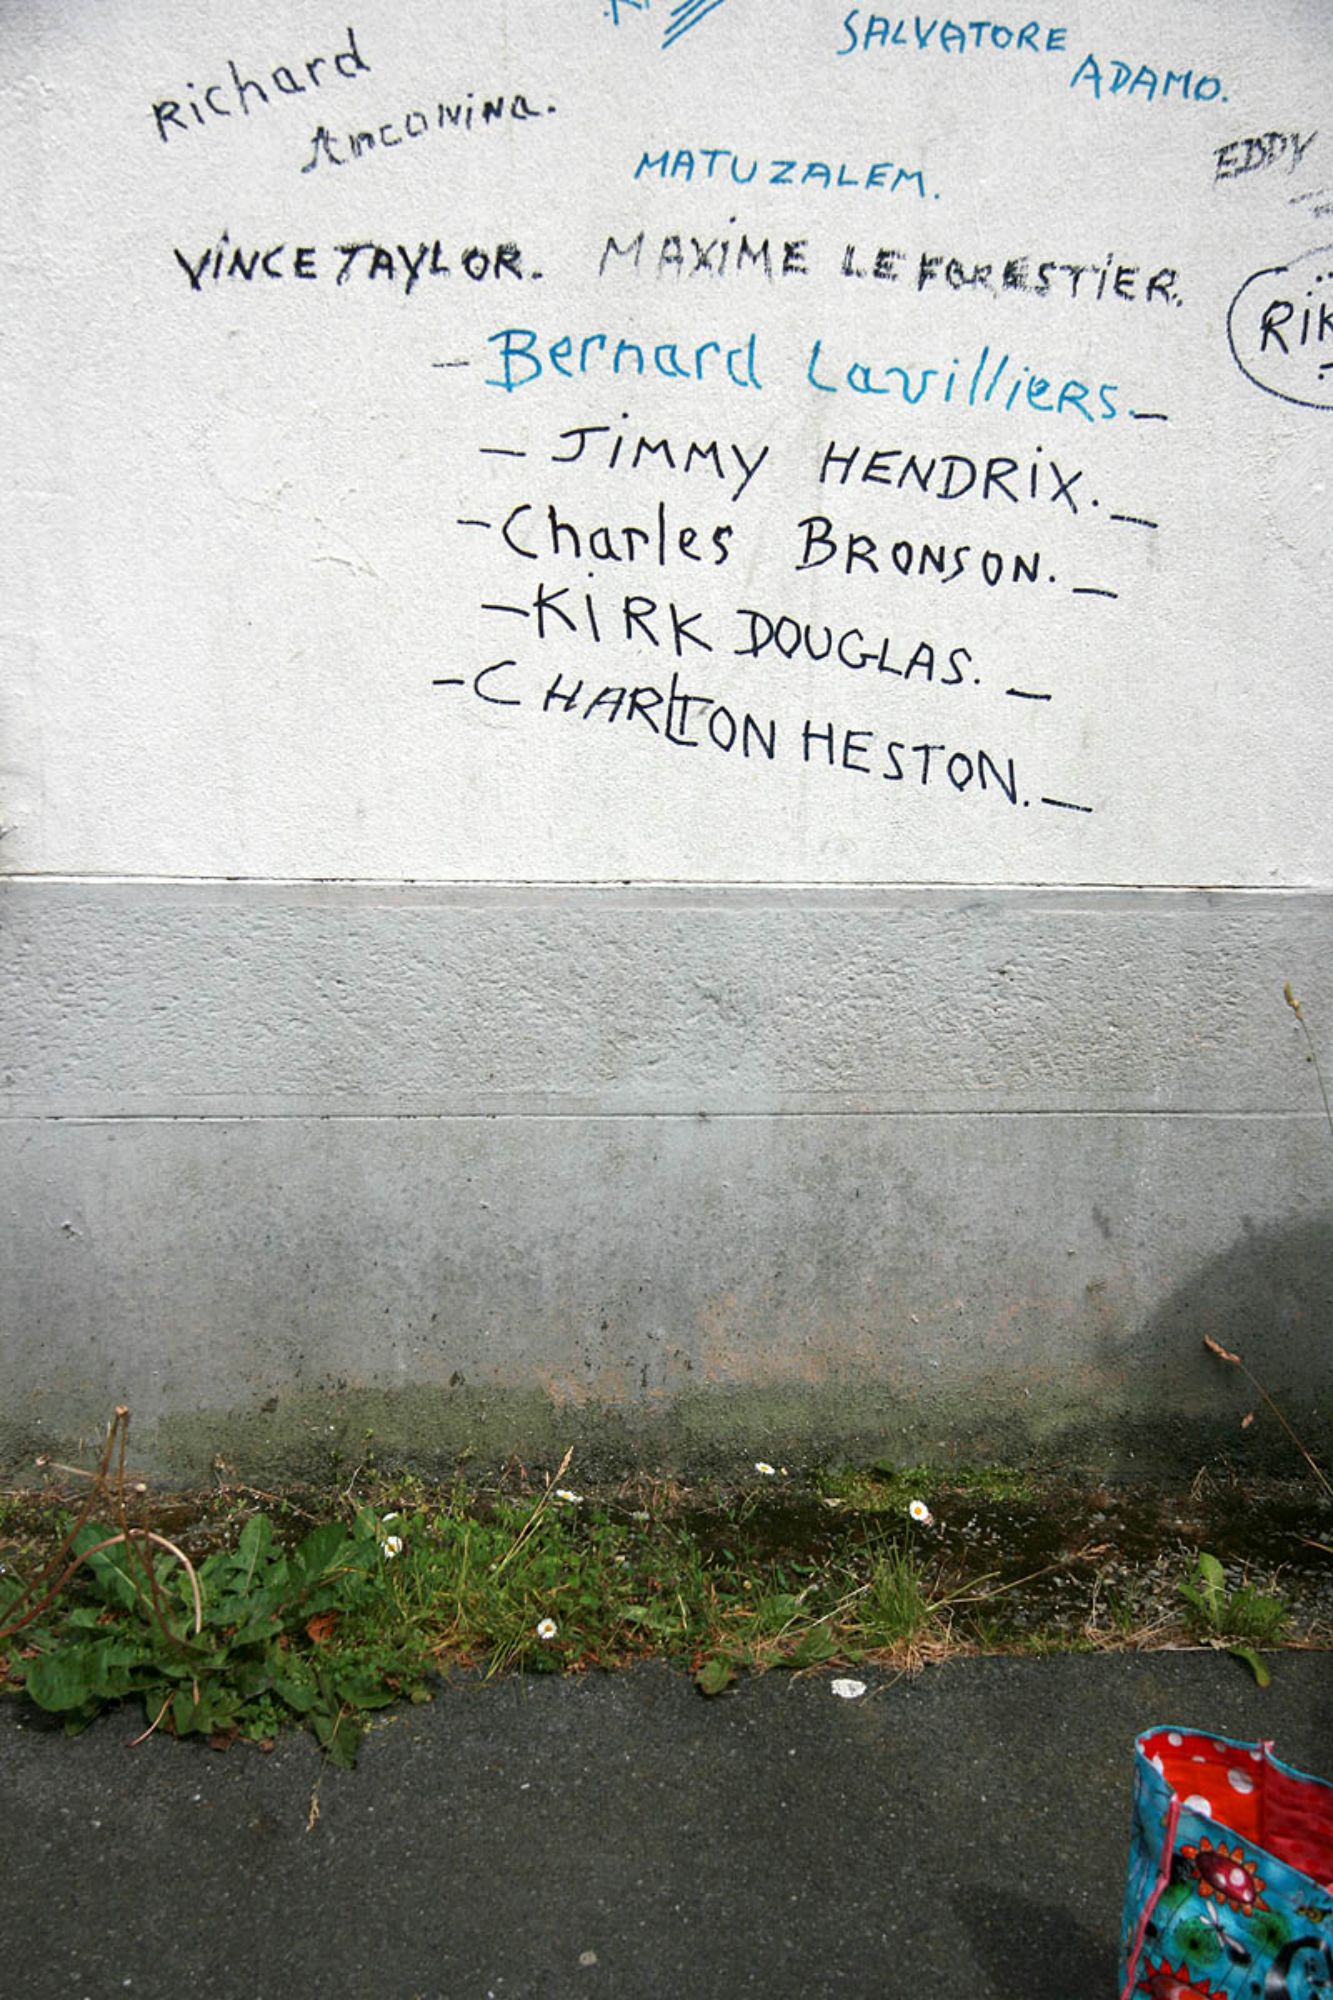 SALVATORE
ADAMO.
Richard
Anconina.
EDDY
MATUZALEM.
VINCE TAYLOR. MAXIME LE FORESTIER.
- Bernard Lavilliers. -
- JiMMY HENDRiX. -
- Charles BRONSON. -
- KiRK DOUGLAS. -
- CHARLTON HESTON. -